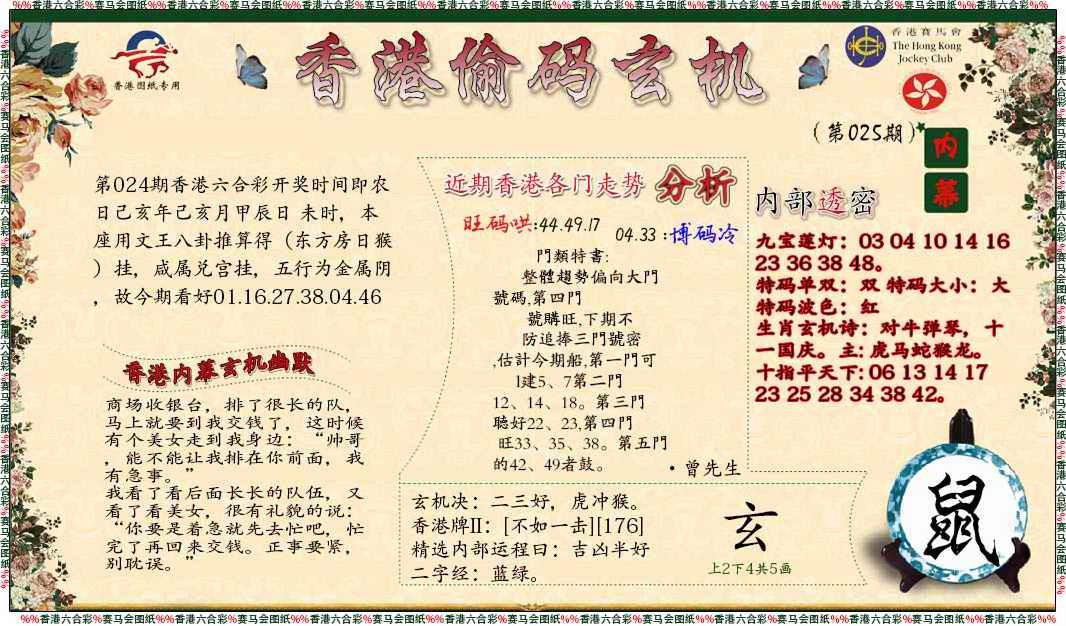 %%香港六合彩%赛马会图纸%%香港六合彩%赛马会图纸%%香港六合彩%赛马会图纸%%香港六合彩%赛马会图纸%%香港六合彩%赛马会图纸%%香港六合彩%赛马会图纸%%香港六合彩%%
香港图纸专用
香港偷码玄机
香港賽馬會
The Hong Kong
Jockey Club
(第025期)
内
幕
第024期香港六合彩开奖时间即农
日己亥年己亥月甲辰日 未时，本
座用文王八卦推算得（东方房日猴
）挂，咸属兑宫挂，五行为金属阴
，故今期看好01.16.27.38.04.46
香港内幕玄机幽默
商场收银台，排了很长的队，
马上就要到我交钱了，这时候
有个美女走到我身边：“帅哥
，能不能让我排在你前面，我
有急事。”
我看了看后面长长的队伍，又
看了看美女，很有礼貌的说：
“你要是着急就先去忙吧，忙
完了再回来交钱。正事要紧，
别耽误。”
近期香港各门走势 分析
旺码哄:44.49.17
04.33 :博码冷
門類特書:
整體趨勢偏向大門
號碼,第四門
號購旺,下期不
防追捧三門號密
,估計今期船,第一門可
1建5、7第二門
12、14、18。第三門
聽好22、23,第四門
旺33、35、38。第五門
的42、49者鼓。
·曾先生
内部透密
九宝莲灯：03 04 10 14 16
23 36 38 48。
特码单双：双 特码大小：大
特码波色：红
生肖玄机诗：对牛弹琴，十
一国庆。主: 虎马蛇猴龙。
十指平天下: 06 13 14 17
23 25 28 34 38 42。
玄机决：二三好，虎冲猴。
香港牌II：[不如一击][176]
精选内部运程曰：吉凶半好
二字经：蓝绿。
玄
上2下4共5画
鼠
%%香港六合彩%赛马会图纸%%香港六合彩%赛马会图纸%%香港六合彩%赛马会图纸%%香港六合彩%赛马会图纸%%香港六合彩%赛马会图纸%%香港六合彩%赛马会图纸%%香港六合彩%%